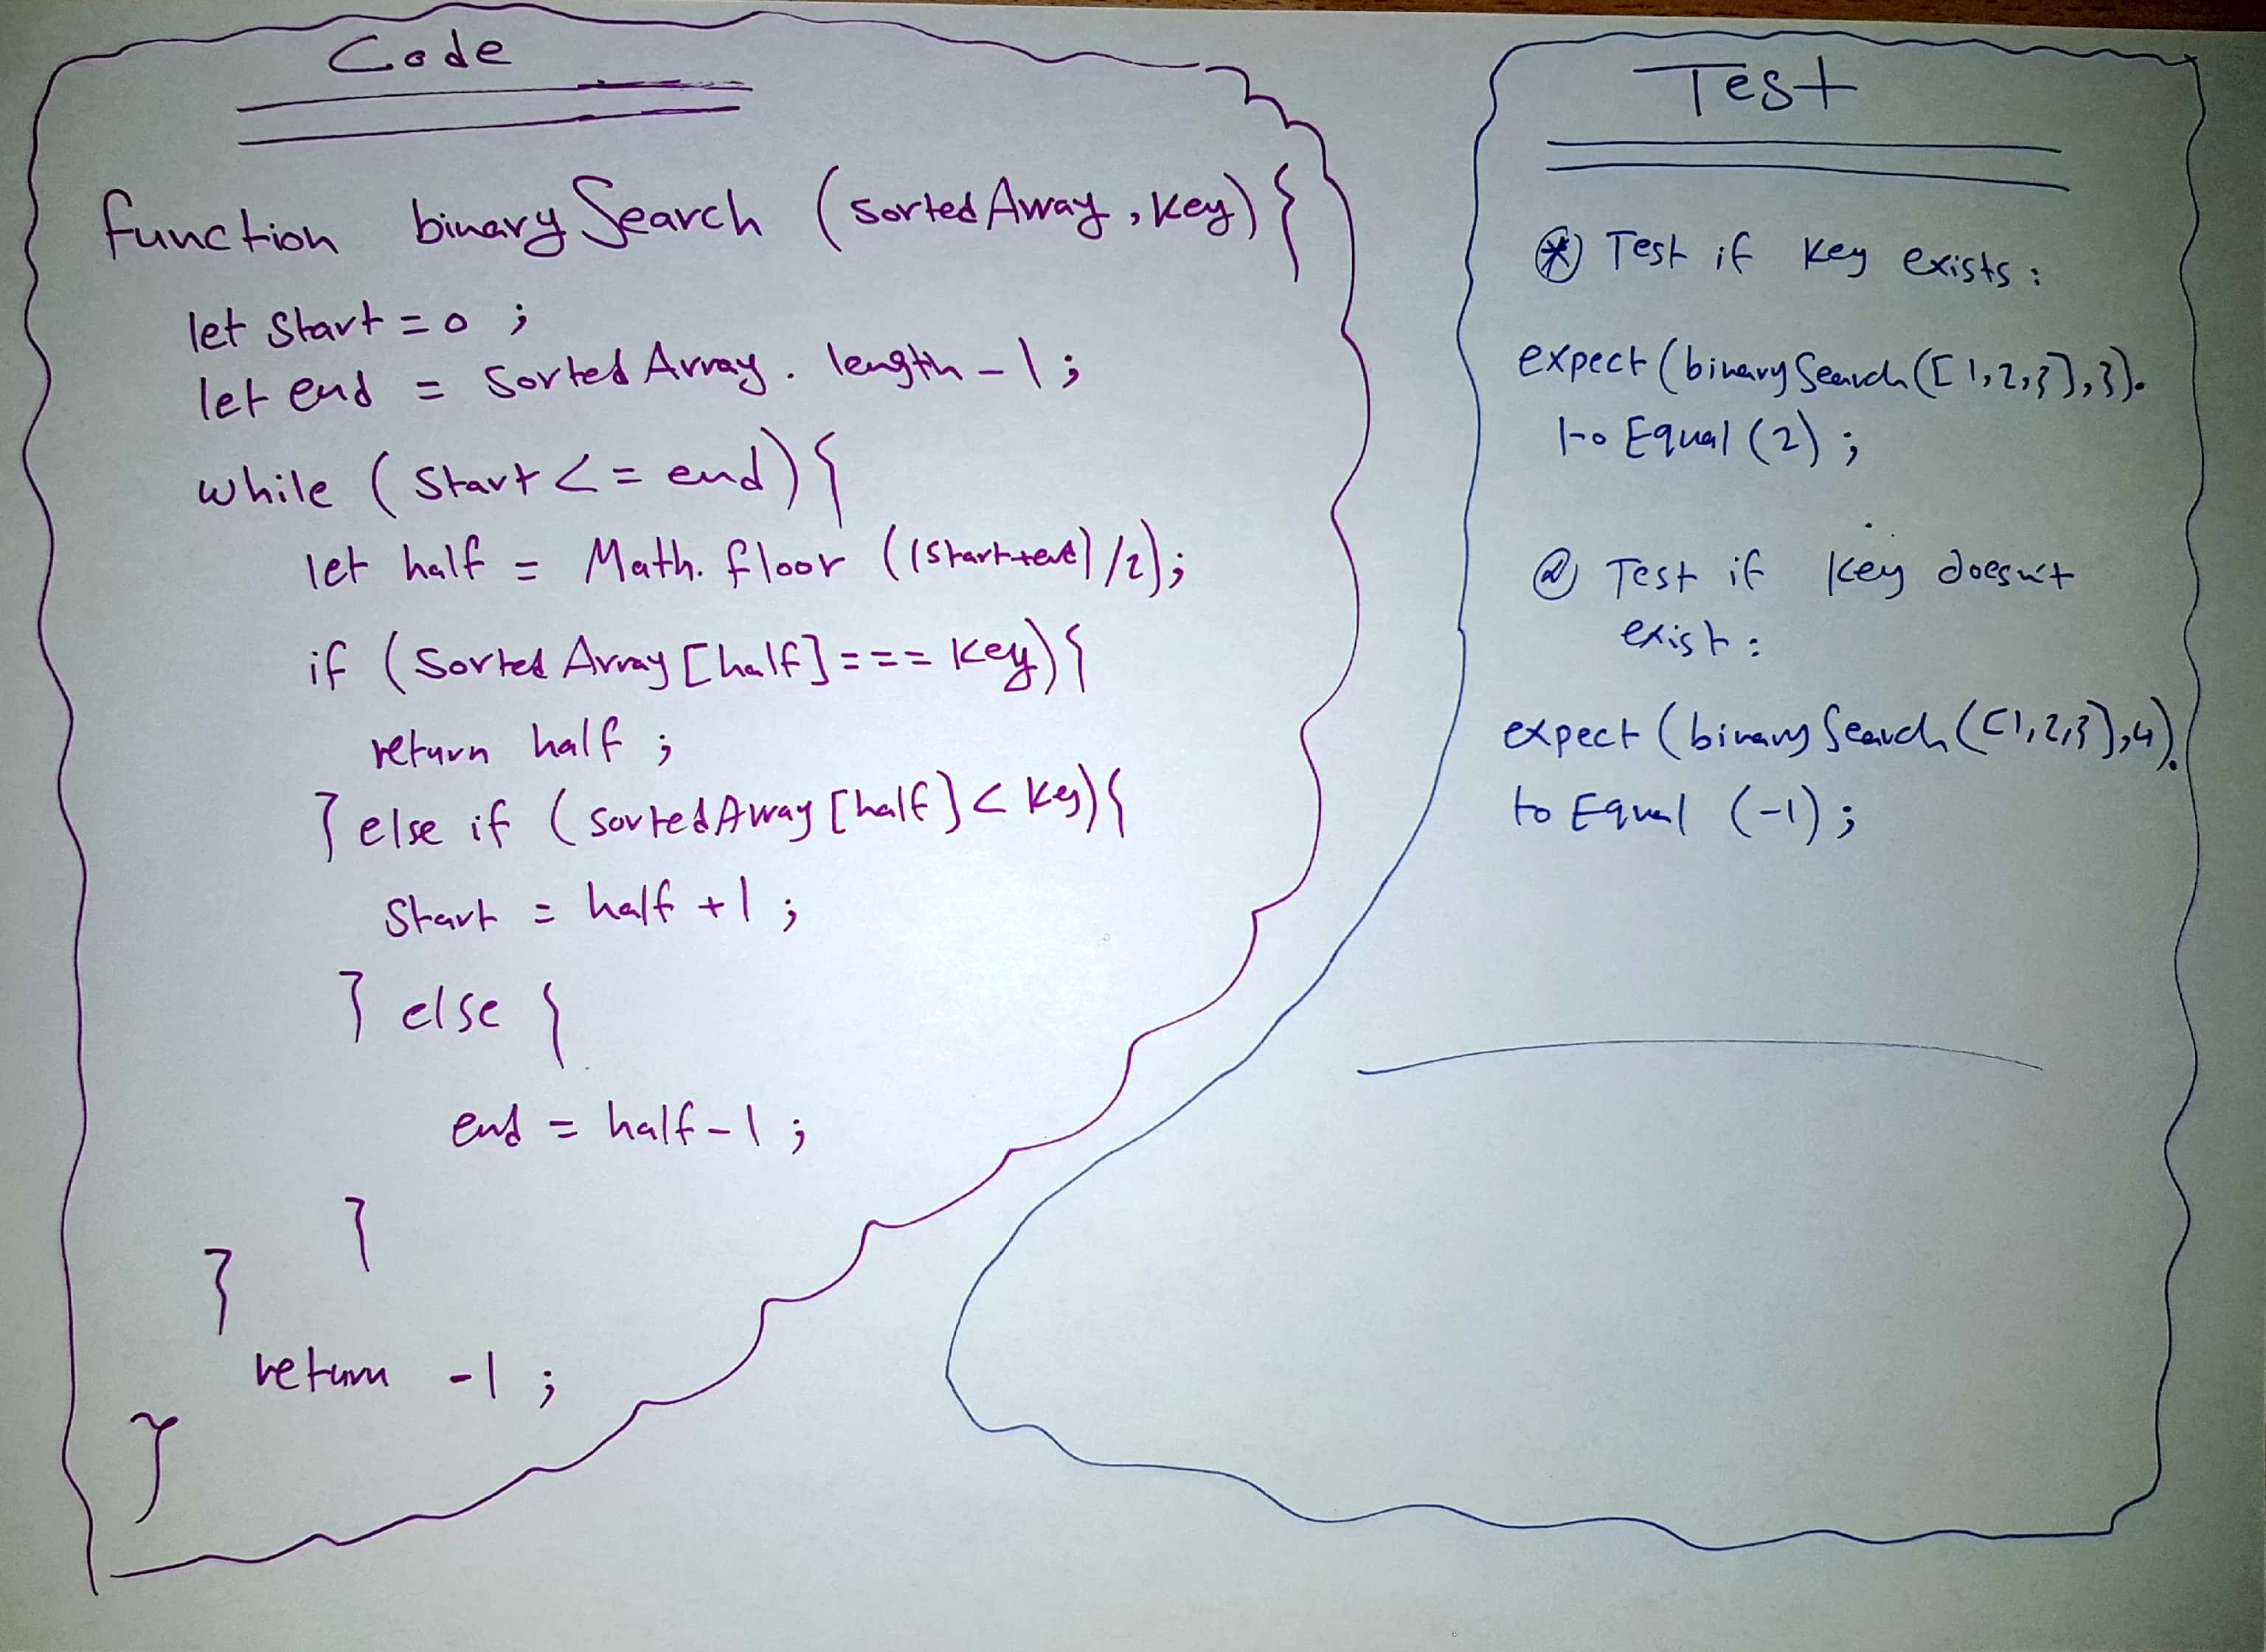 Code
function binarySearch (sortedArray, key) {
let start = 0 ;
let end = sortedArray. length - 1 ;
while ( start <= end) {
let half = Math. floor ((start+end) /2);
if ( sortedArray [half] === key) {
return half ;
} else if ( sortedArray [half] < key) {
start = half + 1 ;
} else {
end = half - 1 ;
}
}
return -1 ;
}
Test
* Test if key exists :
expect (binarySearch ([1,2,3],3).
toEqual (2) ;
@ Test if key doesn't
exist :
expect (binarySearch ([1,2,3],4).
toEqual (-1) ;